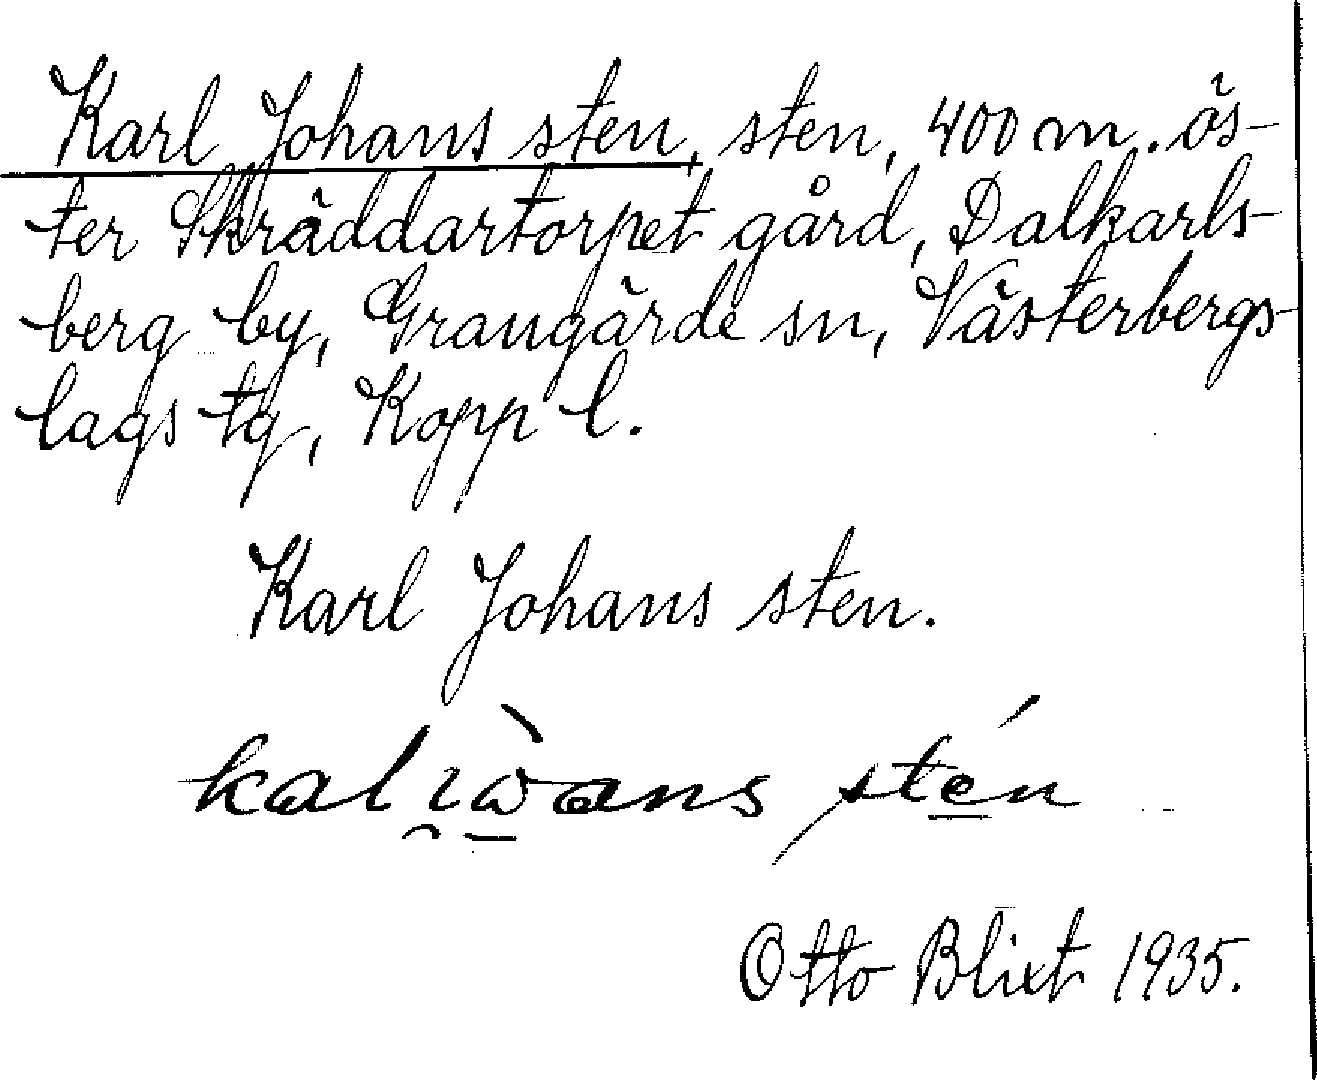 Karl Johans sten, sten, 400 m. ös-
ter Skräddartorpet gård, Dalkarls-
berg by, Grangärde sn, Västerbergs-
lags tg, Kopp l.
Karl Johans sten.
sten
Otto Blixt 1935.